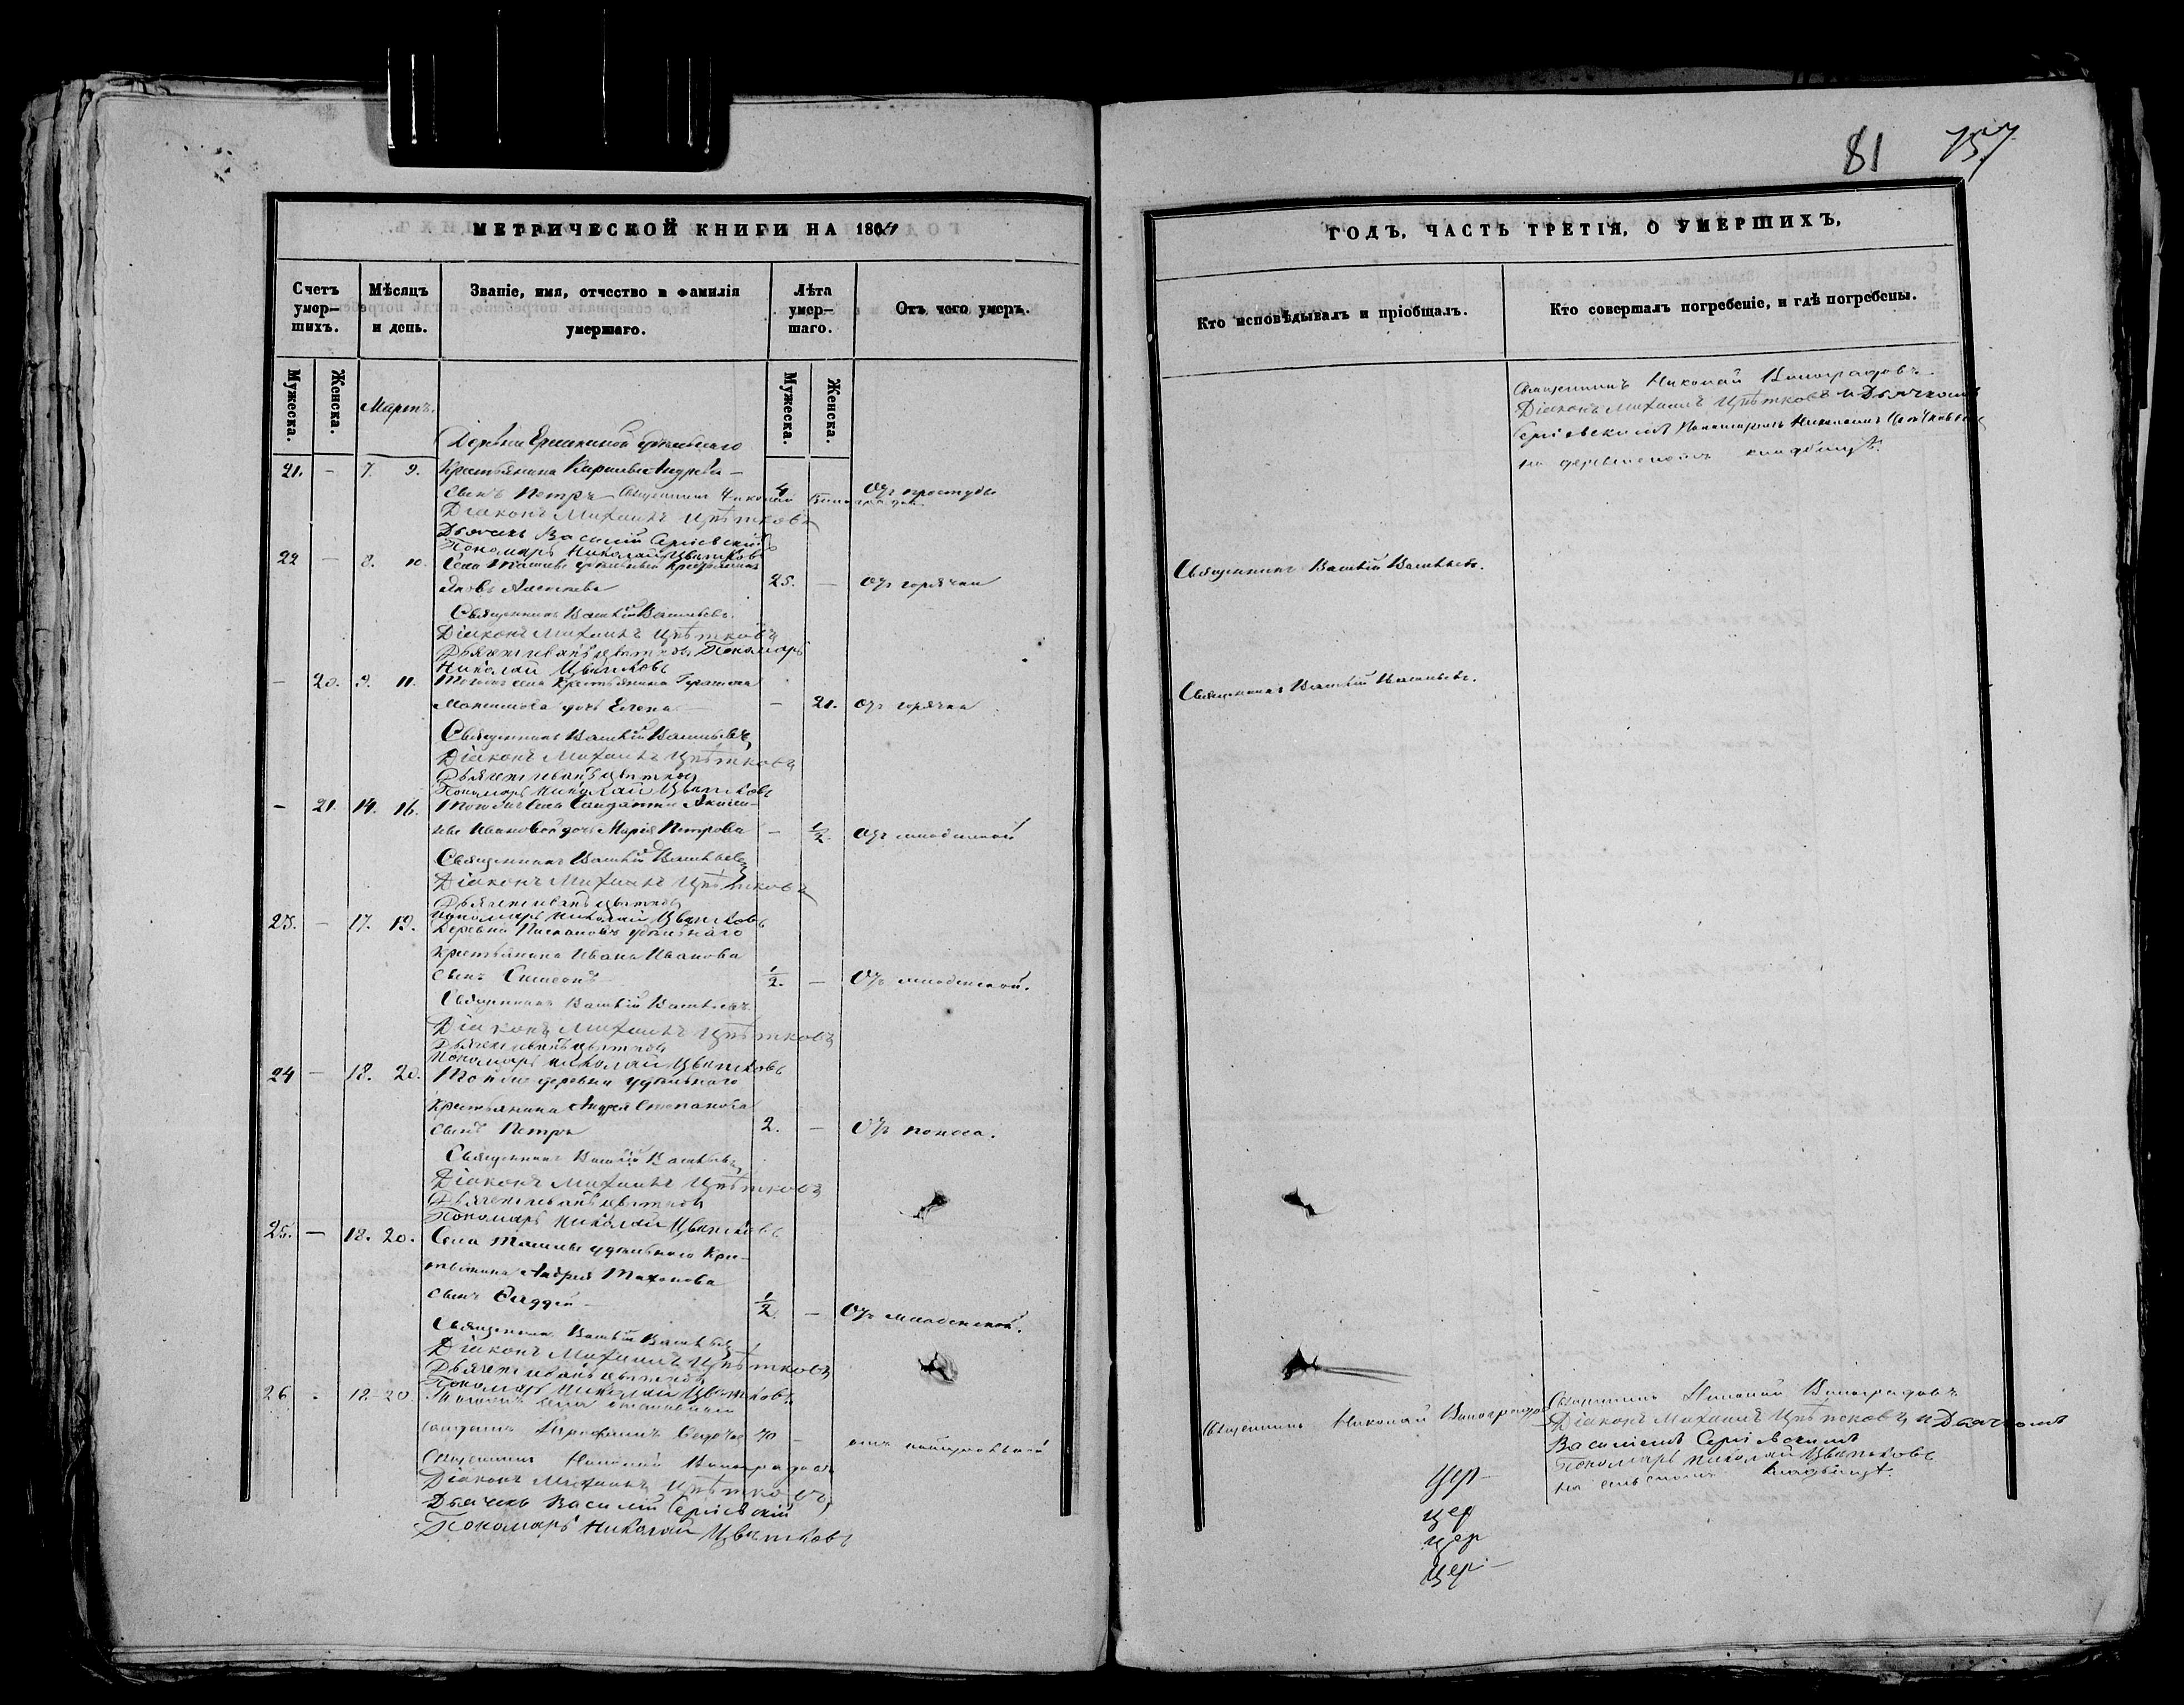 81 757
МЕТРИЧЕСКОЙ КНИГИ НА 1864
Счетъ умер-шихъ.
Мѣсяцъ и день.
Званіе, имя, отчество и фамилія умершаго.
Лѣта умер-шаго.
Отъ чего умеръ.
Мужеска. Женска.
Мартъ.
Мужеска. Женска.
Деревни удѣльнаго
21. — 7. 9. Крестьянина Андреева —
сынъ Петръ 4 Отъ простуды
Священникъ Николай Виноградовъ
Діаконъ Михаилъ Цвѣтковъ
Дьячекъ Василій Сергіевскій
Пономарь Николай Цвѣтковъ
22 — 8. 10. Села удѣльный крестьянинъ
Яковъ Алексѣевъ 25. — Отъ горячки
Священникъ Василій Васильевъ.
Діаконъ Михаилъ Цвѣтковъ
Дьячекъ Иванъ Цвѣтковъ Пономарь
Николай Цвѣтковъ
— 20. 9. 11. Тогоже села крестьянина
дочь Елена — — 21. Отъ горячки
Священникъ Василій Васильевъ
Діаконъ Михаилъ Цвѣтковъ
Дьячекъ Иванъ Цвѣтковъ
Пономарь Николай Цвѣтковъ
— 21. 14. 16. Тогоже села Солдатки
Ивановой дочь Марія Петрова — 1/2. Отъ младенской
Священникъ Василій Васильевъ
Діаконъ Михаилъ Цвѣтковъ
Дьячекъ Иванъ Цвѣтковъ
Пономарь Николай Цвѣтковъ
23. — 17. 19. Деревни удѣльнаго
крестьянина Ивана Иванова
сынъ Симеонъ 1/2. — Отъ младенской.
Священникъ Василій Васильевъ
Діаконъ Михаилъ Цвѣтковъ
Дьячекъ Иванъ Цвѣтковъ
Пономарь Николай Цвѣтковъ
24 — 18. 20. Той же деревни удѣльнаго
крестьянина Андрея Степанова
сынъ Петръ 2. — Отъ поноса.
Священникъ Василій Васильевъ
Діаконъ Михаилъ Цвѣтковъ
Дьячекъ Иванъ Цвѣтковъ
Пономарь Николай Цвѣтковъ
25. — 18. 20. Села удѣльнаго Кре-
стьянина Андрея
сынъ Фаддей — 1/2. — Отъ младенской.
Священникъ Василій Васильевъ
Діаконъ Михаилъ Цвѣтковъ
Дьячекъ Иванъ Цвѣтковъ
Пономарь Николай Цвѣтковъ
26. 18. 20 Тогоже села
солдатъ 70 —
Священникъ Николай Виноградовъ
Діаконъ Михаилъ Цвѣтковъ
Дьячекъ Василій Сергіевскій
Пономарь Николай Цвѣтковъ
ГОДЪ, ЧАСТЬ ТРЕТІЯ, О УМЕРШИХЪ,
Кто исповѣдывалъ и пріобщалъ.
Кто совершалъ погребеніе, и гдѣ погребены.
Священникъ Николай Виноградовъ
Діаконъ Михаилъ Цвѣтковъ и Дьячкомъ
Сергіевскимъ Пономаремъ Николаемъ Цвѣтковымъ
на деревенскомъ кладбищѣ.
Священникъ Василій Васильевъ.
Священникъ Василій Васильевъ.
Священникъ Николай Виноградовъ
Священникъ Николай Виноградовъ
Діаконъ Михаилъ Цвѣтковъ и Дьячкомъ
Василіемъ Сергіевскимъ
Пономарь Николай Цвѣтковъ
на сельскомъ кладбищѣ.
цер-
цер
цер
цер-